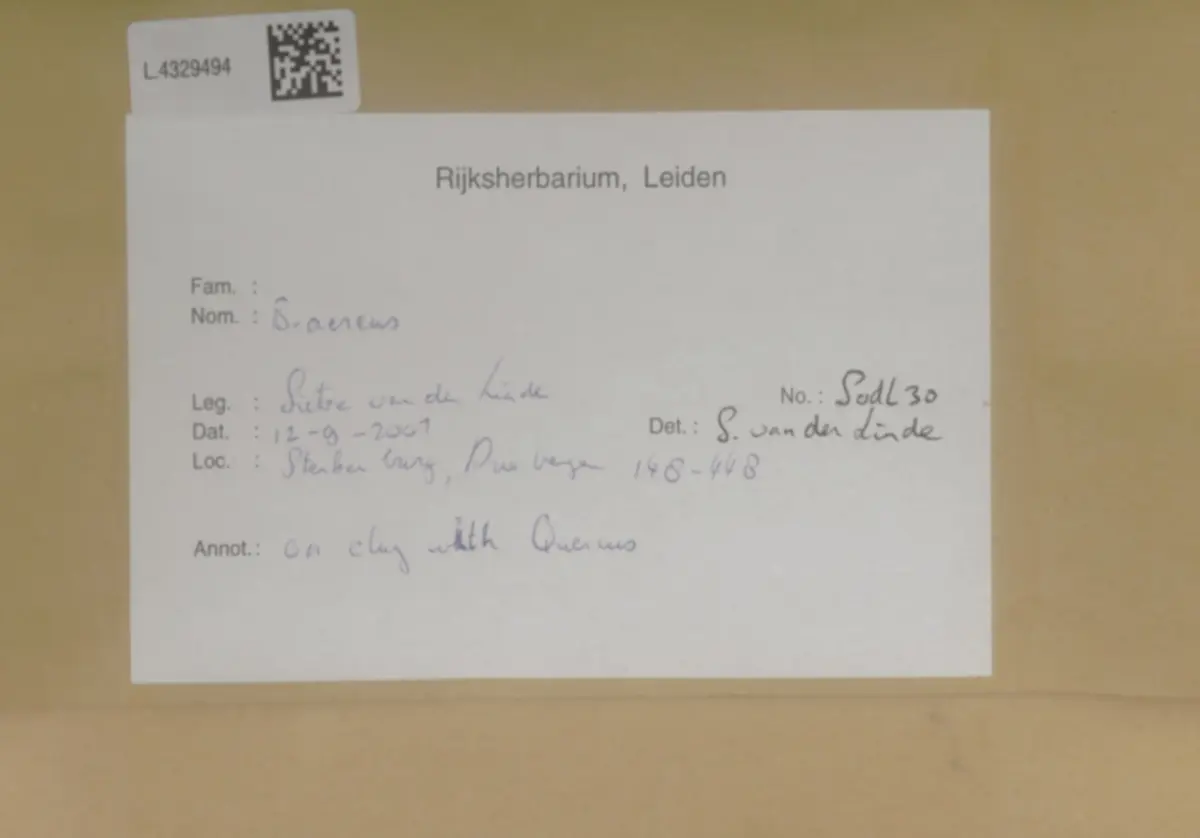 L.4329494
Rijksherbarium, Leiden
Fam. :
Nom. : B. aereus
Leg. : Sietse van der Linde
No.: SvdL 30
Dat. : 12-9-2001
Det.: S. van der Linde
Loc. : Sterkenburg, Driebergen 148-448
Annot.: on clay with Quercus